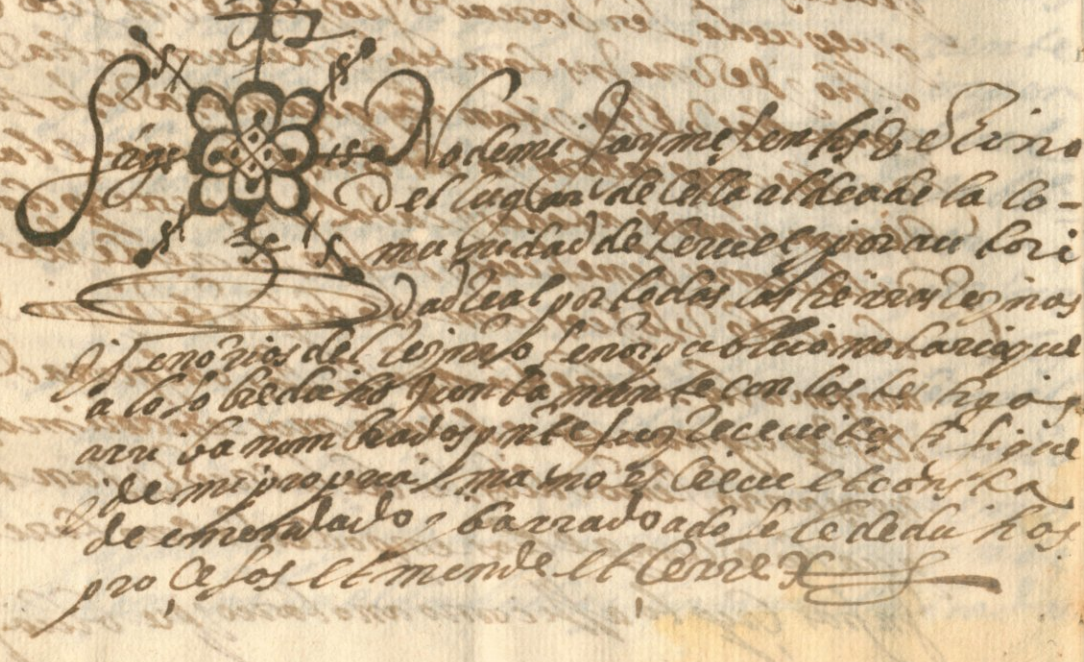 Sig no de mi Jayme sentis Vezino
del lugar de Cella aldea de la Co-
munidad de Teruel y por autori
dad Real por todas las tierras Reynos
y senorios del Rey nro senor publico notario que
a lo sobredicho juntamente con los testigos
arriba nombrados pnte fuy Receui et signe
de mi propria mano escreui et consta
de emendado y barrado ado se le dedichos
procesos et mende et cerre